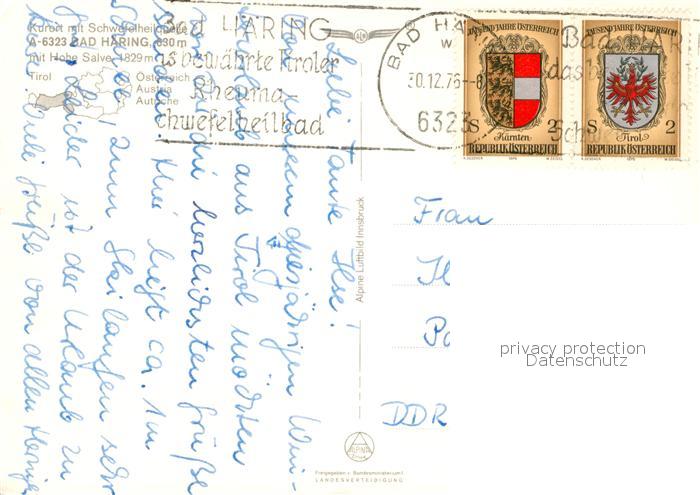 Kurort mit Schwefelheilquelle
A-6323 BAD HÄRING, 630 m
mit Hohe Salve, 1829 m
Tirol
Österreich
Austria
Autriche
Bad HÄRING
das bewährte Tiroler
Rheuma-
Schwefelheilbad
BAD HÄ
30.12.76-8
6323
TAUSEND JAHRE ÖSTERREICH
S 2
Kärnten
REPUBLIK ÖSTERREICH
1976
TAUSEND JAHRE ÖSTERREICH
S 2
Tirol
REPUBLIK ÖSTERREICH
1976
Liebe Tante Ilse!
Von unserem diesjährigen Win-
aus Tirol möchten
wir die herzlichsten Grüße
Hier liegt ca. 1m
zum Skilaufen sehr
Leider ist der Urlaub zu
Viele Grüße von allen
Alpine Luftbild Innsbruck
Frau
Il
Po
DDR
privacy protection
Datenschutz
ALPINE
Freigegeben v. Bundesministerium f.
LANDESVERTEIDIGUNG